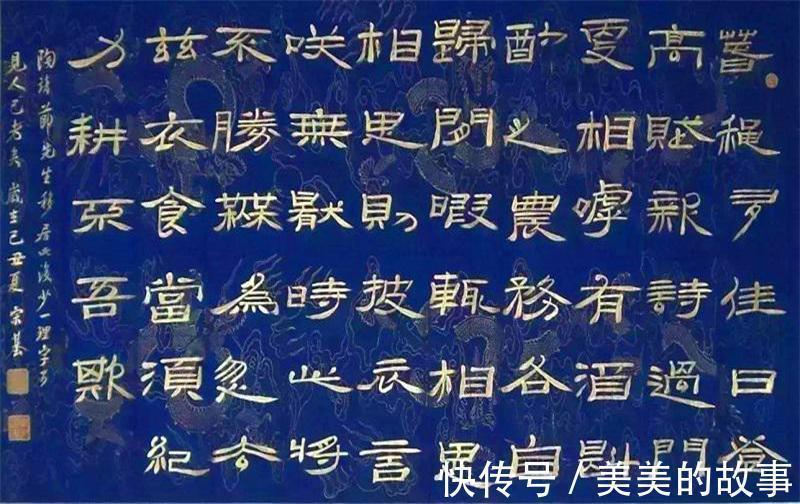 萅穐多佳日登
高賦新詩過門
更相嘑有酒斟
酌之農務各自
歸閒暇輒相思
相思則披衣言
咲無厭時此將
不勝無為忽去
茲衣食當須紀
力耕不吾欺
陶靖節先生移居 少一理字可
見人已老矣 歲在己丑夏 宗
快传号 / 美美的故事